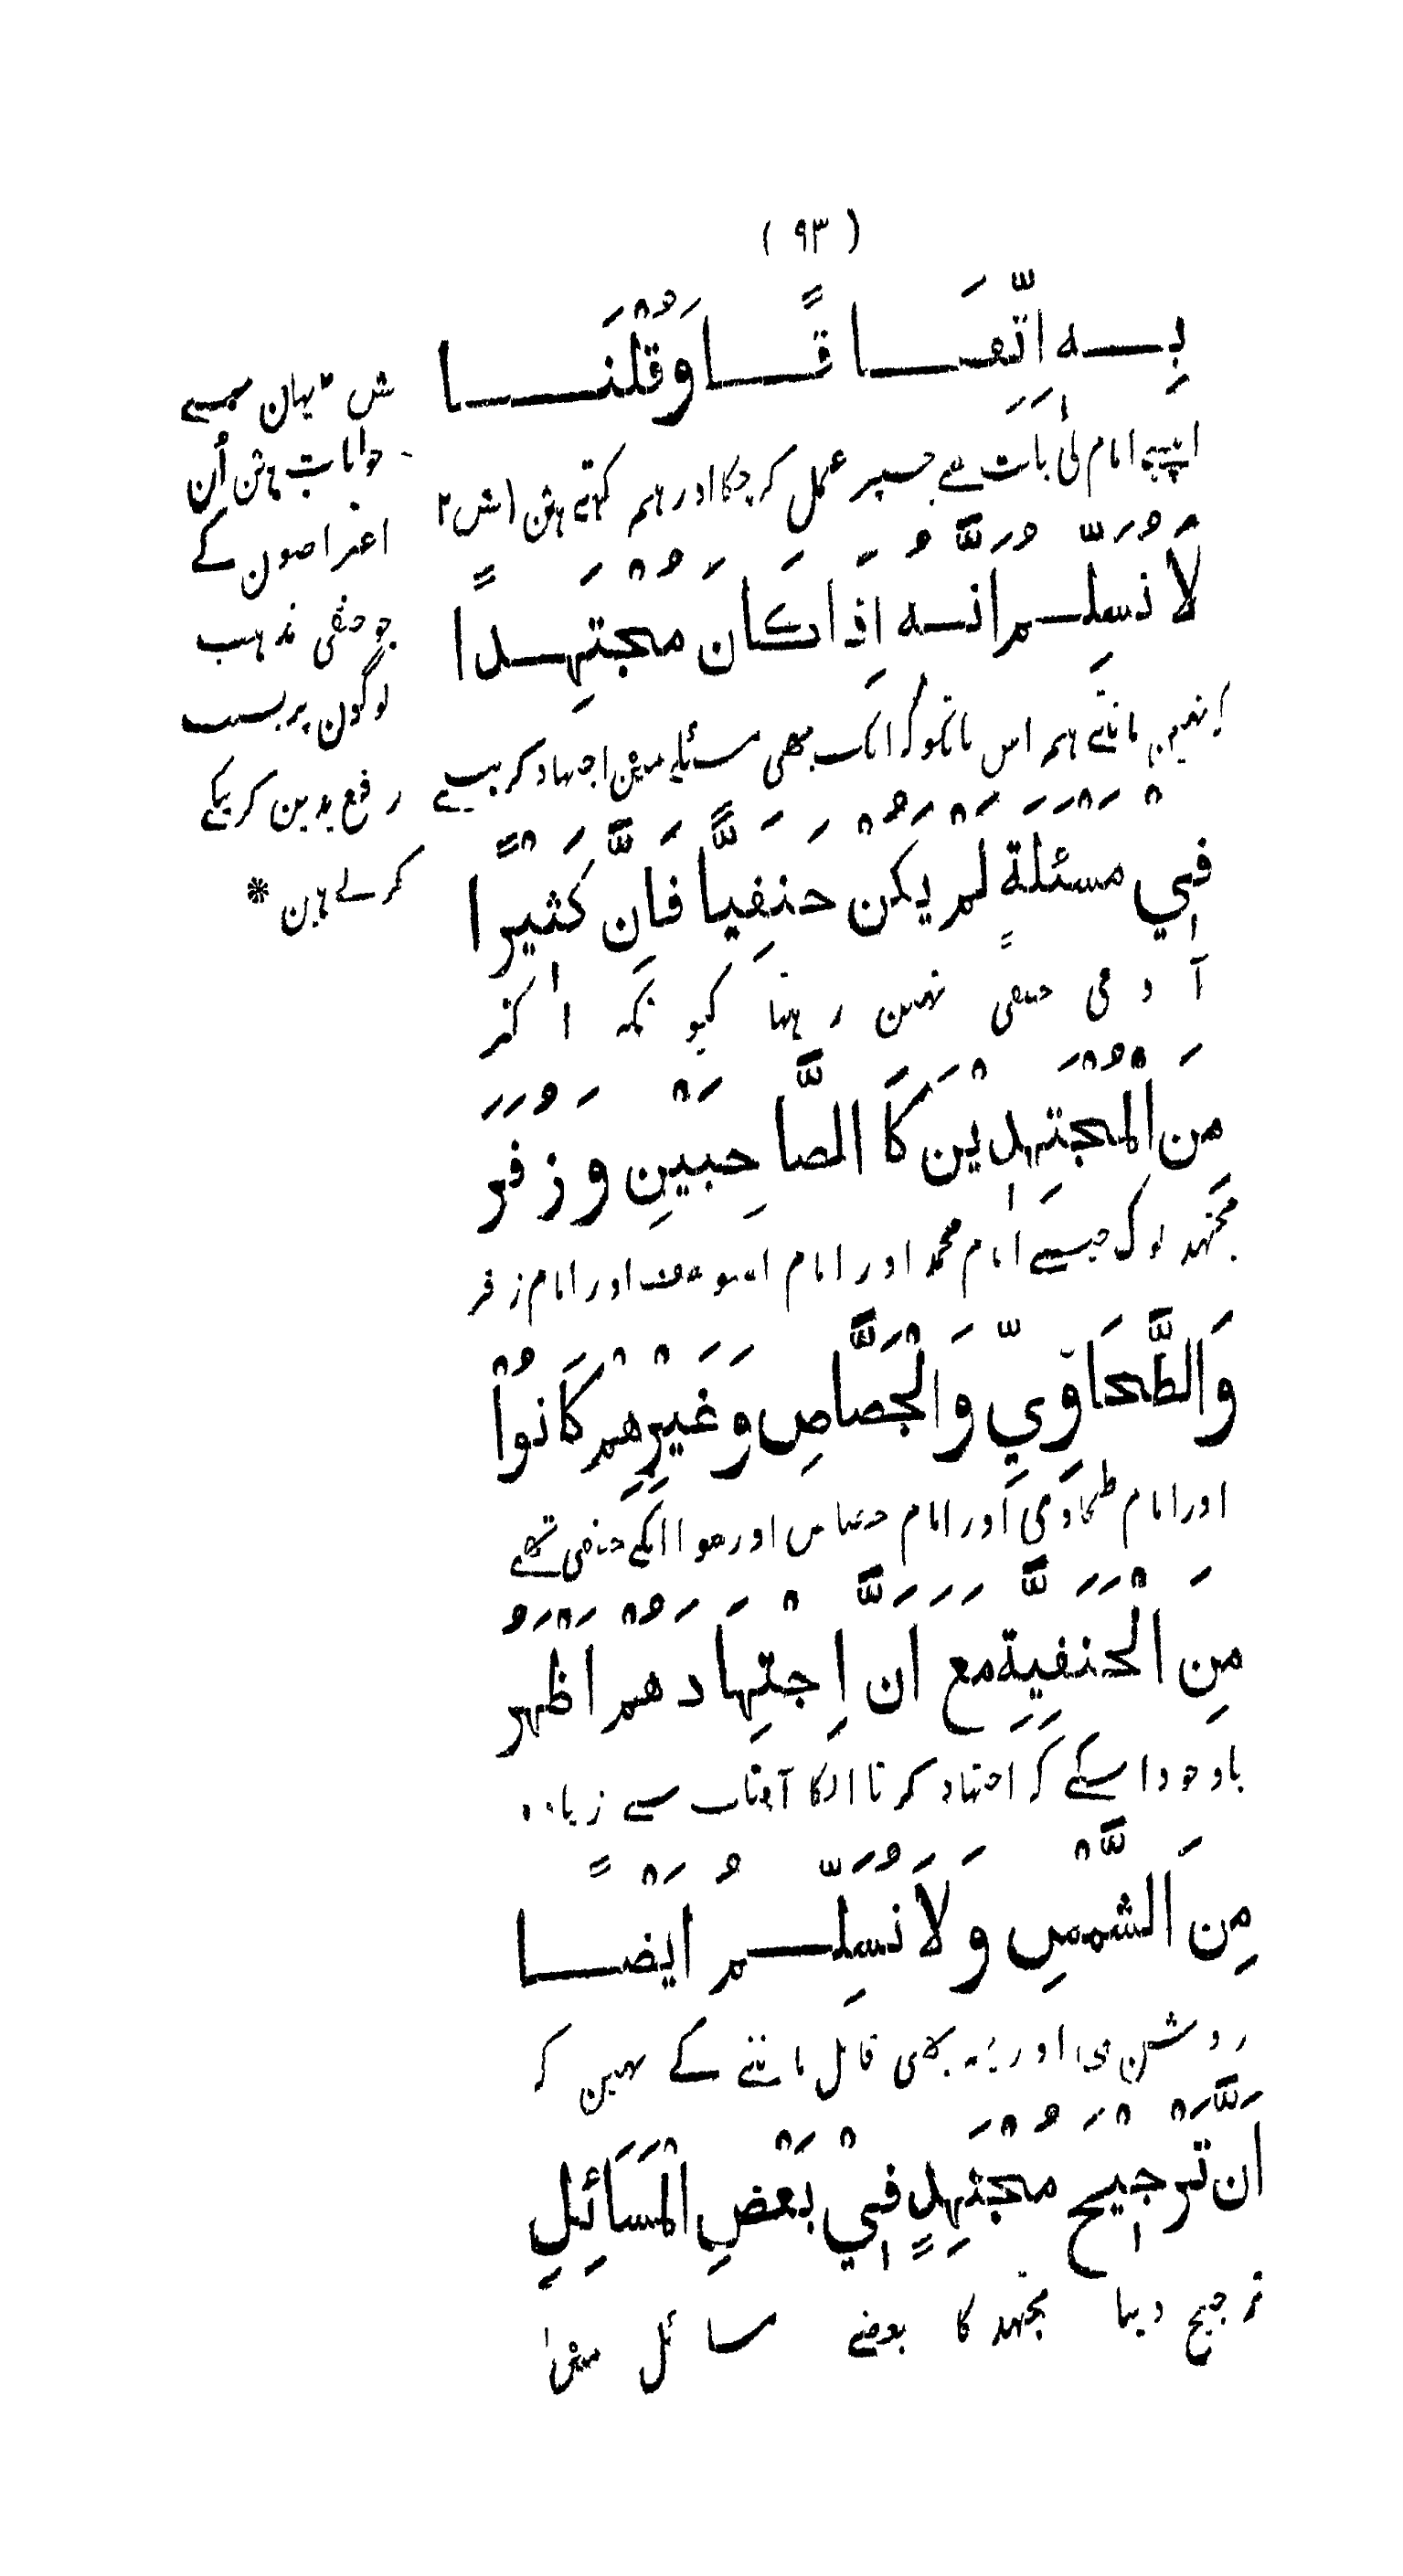 ( ٩٣ )
بِـــه اتِّفَـــا قًـــا وَقُلْنَـــا
اپنے امام کی بات سے جسپر عمل کر چکا اور ہم کہتے ہیں (ش ۲
لَا نُسَلِّـــمُ اَنَّـــهُ اِذَا كَانَ مُجْتَهِـــدًا
نہیں مانتے ہم اس بات کو کہ ایک بھی مسئلے میں اجتہاد کرنیسے
فِي مَسْئَلَةٍ لَمْ يَكُنْ حَنَفِيًّا فَاِنَّ كَثِيْرًا
آ د می حنفی نہین ر ہتا کیو نکہ ا کثر
مِنَ الْمُجْتَهِدِيْنَ كَا الصَّاحِبَيْنِ وَزُفَرَ
مجتہد لوگ جیسے امام محمد اور امام ابو یوسف اور امام زفر
وَالطَّحَاوِيِّ وَالْجَصَّاصِ وَغَيْرِهِمْ كَانُوْا
اور امام طحاوی اور امام جصاص اور سوا انکے حنفی تھے
مِنَ الْحَنَفِيَّةِ مَعَ اَنَّ اِجْتِهَادَهُمْ اَظْهَرُ
باوجود اسکے کہ اجتہاد کرنا انکا آفتاب سے زیادہ
مِنَ الشَّمْسِ وَلَا نُسَلِّـــمُ اَيْضًـــا
روشن ہی اور یہ بھی قابل ماننے کے نہین کہ
اَنَّ تَرْجِيْحَ مُجْتَهِدٍ فِيْ بَعْضِ الْمَسَائِلِ
ترجیح دینا مجتہد کا بعضے مسائل میں
ش ۲ یہان سے
جوابات ہیں اُن
اعتراضون کے
جو حنفی مذہب
لوگون پر بسبب
رفع یدین کرنیکے
کرتے ہین *